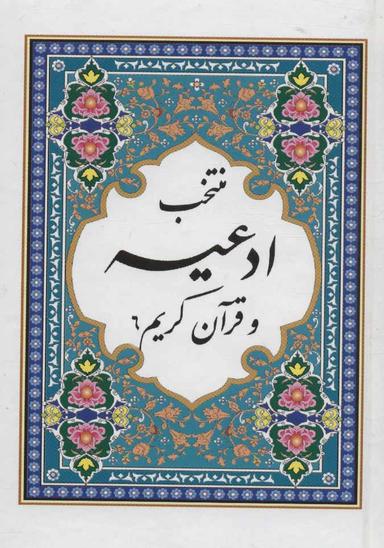 منتخب
ادعیه
و قرآن کریم ۶